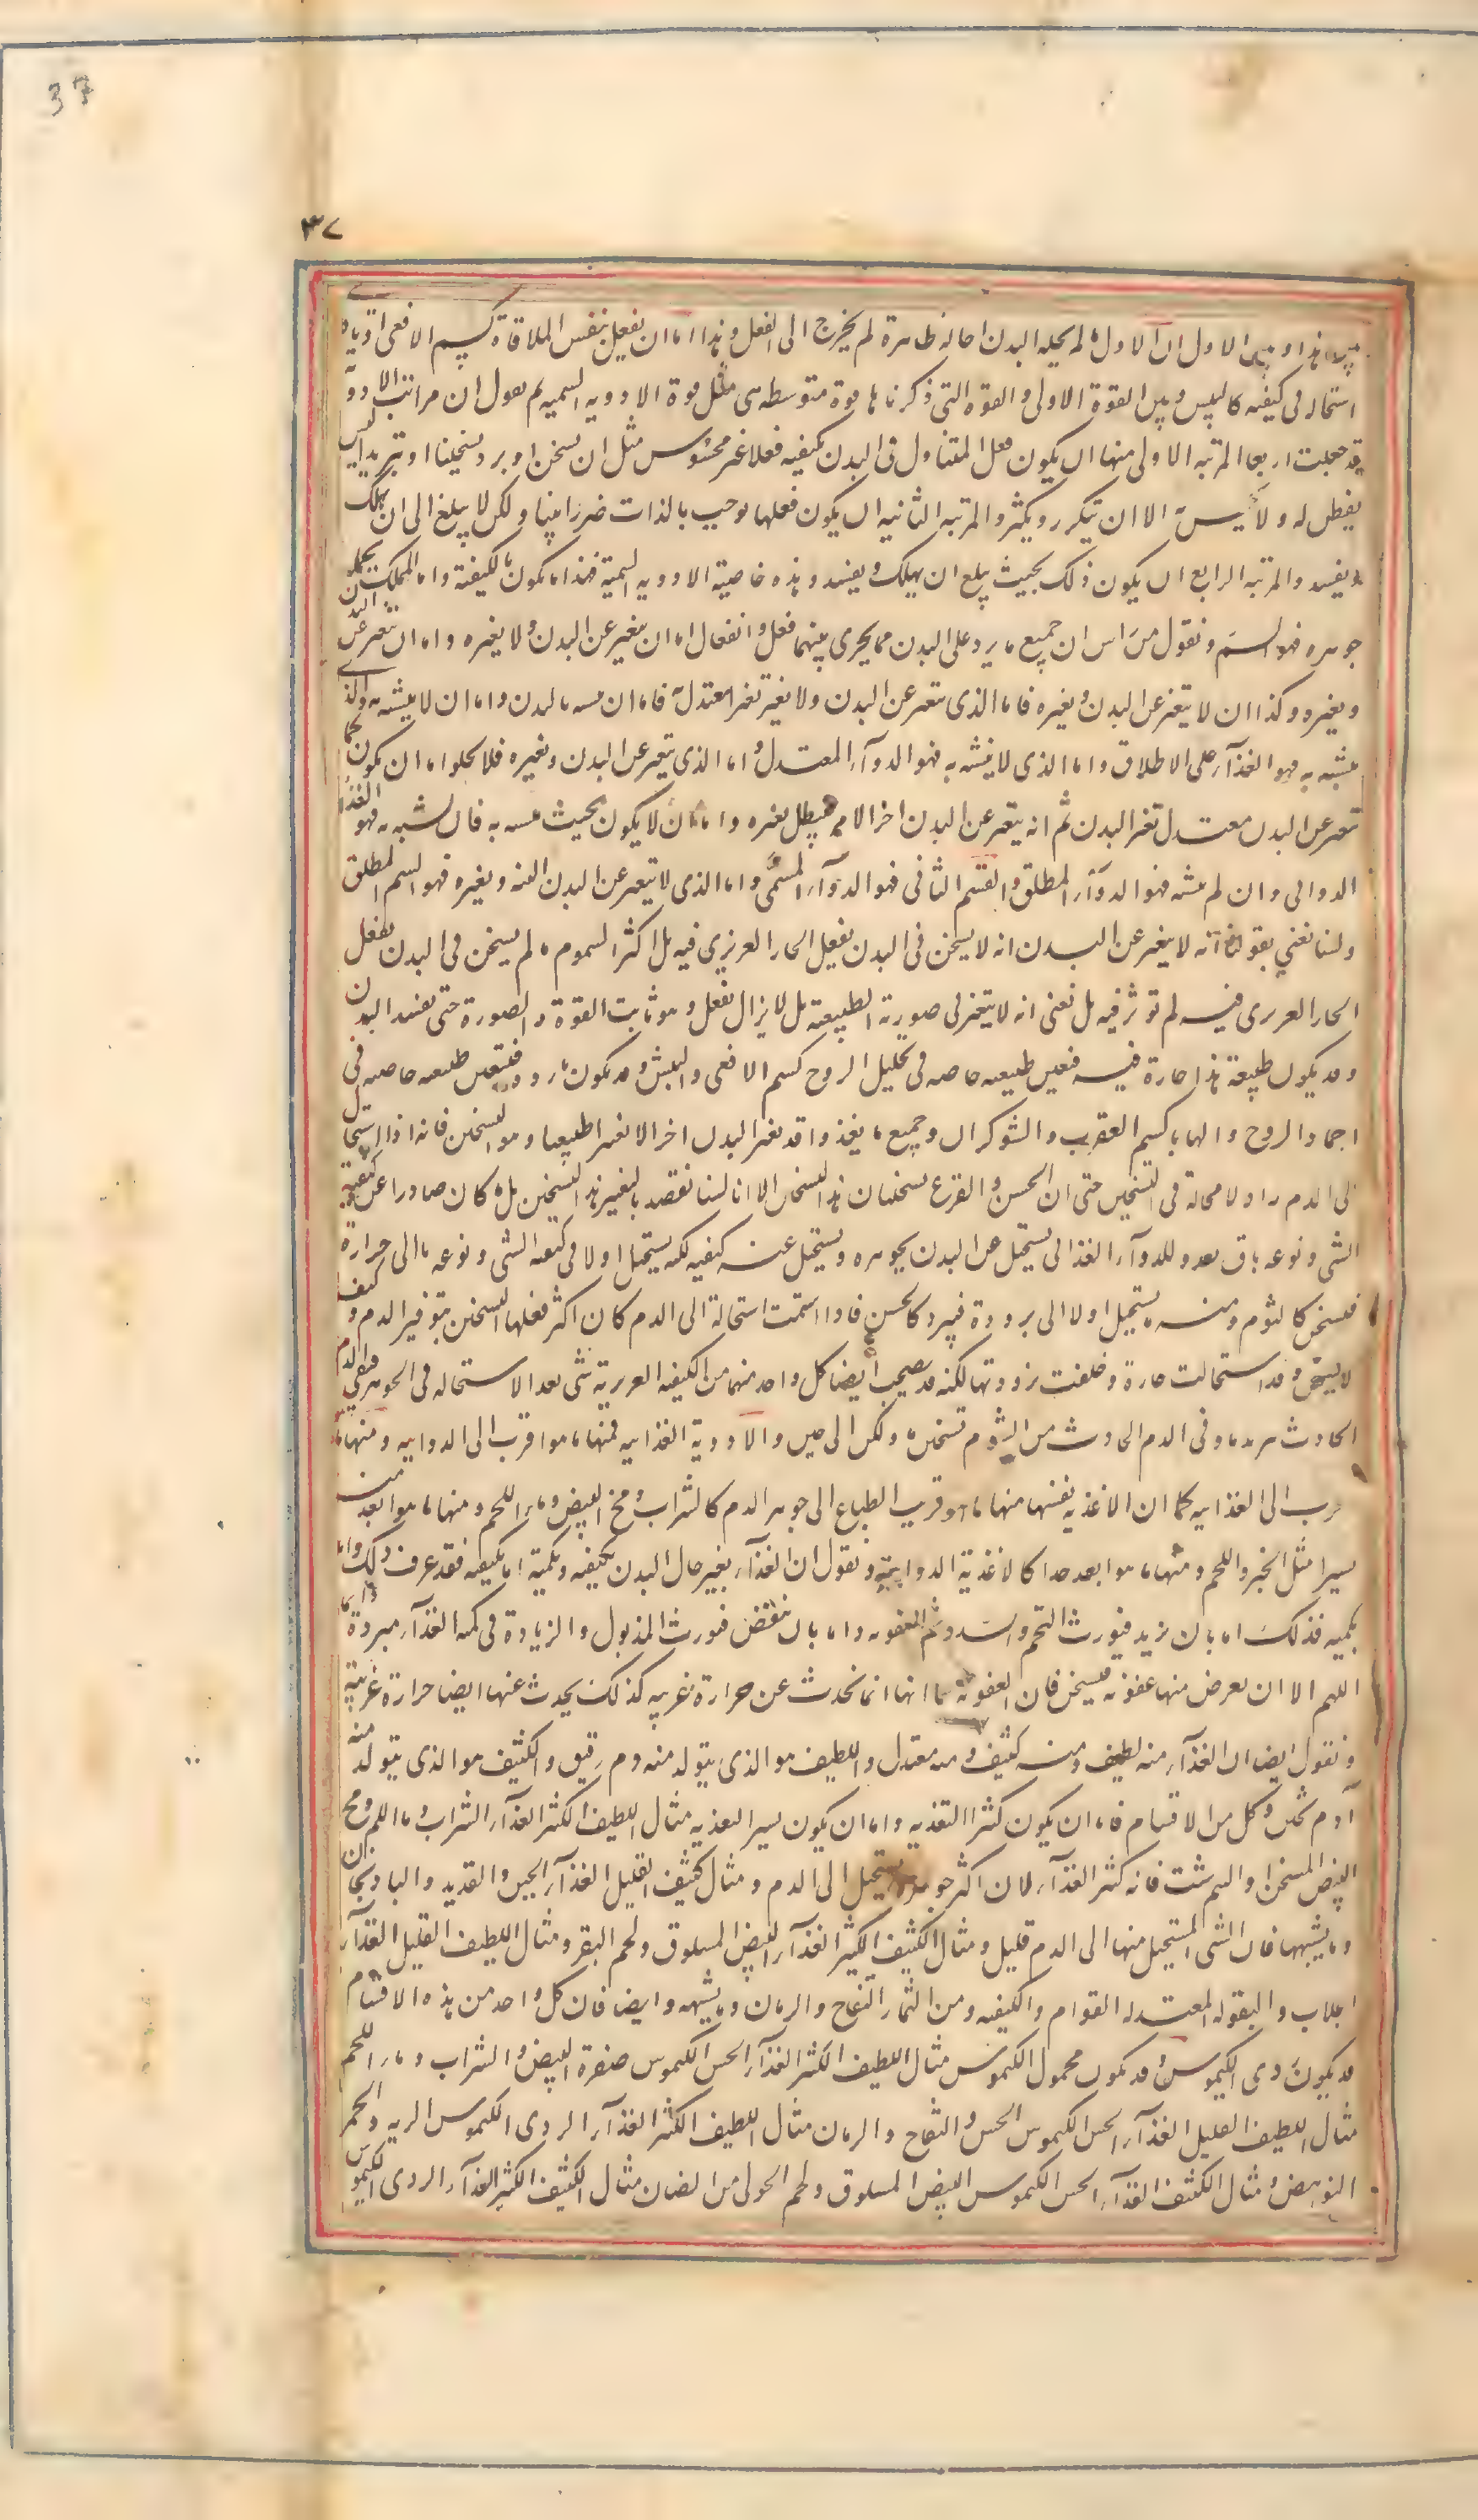 37
٣٧
هذا وبين الاول ان الاول ما لم يحيله البدن احالة ظاهرة لم يخرج الى الفعل وهذا اما ان يفعل بنفس الملاقاة كسم الافعى او بادنى
استحالة فى كيفيته كالبيش وبين القوة الاولى والقوة التى ذكرناها قوة متوسطة هى مثل قوة الادوية السمية ثم نقول ان مراتب الادوية
قد جعلت اربعا المرتبة الاولى منها ان يكون فعل المتناول فى البدن بكيفيته فعلا غير محسوس مثل ان يسخن او يبرد تسخينا او تبريدا ليس
يفطن له ولا يحس به الا ان يتكرر ويكثر والمرتبة الثانية ان يكون فعلها يوجب بالذات ضررا بينا ولكن لا يبلغ الى ان يهلك
ويفسد والمرتبة الرابع ان يكون ذلك بحيث يبلغ ان يهلك ويفسد وهذه خاصية الادوية السمية فهذا ما يكون بالكيفية واما المهلك بجملة
جوهره فهو السم ونقول من راس ان جميع ما يرد على البدن مما يجرى بينهما فعل وانفعال اما ان يتغير عن البدن ولا يغيره واما ان يتغير عن البدن
ويغيره وكذا ان لا يتغير عن البدن ويغيره فاما الذى يتغير عن البدن ولا يغيره تغيرا معتدا به فاما ان يتشبه بالبدن واما ان لا يتشبه به والذى
يتشبه به فهو الغذاء على الاطلاق واما الذى لا يتشبه به فهو الدواء المعتدل واما الذى يتغير عن البدن ويغيره فلا يخلوا اما ان يكون كما
يتغير عن البدن معتدل يغير البدن ثم انه يتغير عن البدن اخر الامر فيبطل تغيره واما ان لا يكون بحيث يتشبه به فان تشبه به فهو الغذاء
الدوائى وان لم يتشبه فهو الدواء المطلق والقسم الثانى فهو الدواء السمى واما الذى لا يتغير عن البدن البتة ويغيره فهو السم المطلق
ولسنا نعني بقولنا انه لا يتغير عن البدن انه لا يسخن فى البدن بفعل الحار الغريزى فيه بل اكثر السموم ما لم يسخن فى البدن بفعل
الحار الغريزى فيه لم تؤثر فيه بل نعنى انه لا يتغير فى صورته الطبيعية بل لا يزال يفعل وهو ثابت القوة والصورة حتى يفسد البدن
وقد يكون طبيعة هذا حارة فيه فتعين طبيعته خاصيته فى تحليل الروح كسم الافعى والبيش وقد يكون باردة فتعين طبيعته خاصيته فى
اجماد الروح وايهانها كسم العقرب والشوكران وجميع ما يغذوا قد يغير البدن اخر الامر تغيرا طبيعيا وهو التسخين فانه اذا استحال
الى الدم زاد لا محالة فى التسخين حتى ان الخس والقرع يسخنان هذا التسخين الا انا لسنا نقصد بالتغير هذا التسخين بل ما كان صادرا عن كيفية
الشى ونوعه باق بعد وللدواء الغذائى يستحيل عن البدن بجوهره ويستحيل عنه بكيفيته لكنه يستحيل اولا فى كيفيته الشى ونوعه ما الى حرارة
فيسخن كالثوم ومنه ما يستحيل اولا الى برودة فيبرد كالخس فاذا استمت استحالته الى الدم كان اكثر فعلها التسخين بتوفير الدم وكيف
لا يسخن وقد استحالت حارة وخلعت برودتها لكنه قد يصحب ايضا كل واحد منهما من الكيفية الغريزية شى بعد الاستحالة فى الجوهر فيبقى فى الدم
الحادث من الخس تبريد ما وفى الدم الحادث من الثوم تسخين ما ولكن الى حين والادوية الغذائية فمنها ما هو اقرب الى الدوائية ومنها ما هو
اقرب الى الغذائية كما ان الاغذية نفسها منها ما هو قريب الطباع الى جوهر الدم كالشراب ومخ البيض وماء اللحم ومنها ما هو ابعد منه
يسيرا مثل الخبز واللحم ومنها ما هو ابعد جدا كالاغذية الدوائية ونقول ان الغذاء يغير حال البدن بكيفيته وبكميته اما بكيفيته فقد عرف ذلك واما
بكميته فذلك اما بان يزيد فيورث التخم والسدد ثم العفونة واما بان ينقض فيورث الذبول والزيادة فى كمية الغذاء مبردة دائما
اللهم الا ان يعرض منها عفونة فيسخن فان العفونة كما انها انما تحدث عن حرارة غريبة كذلك يحدث عنها ايضا حرارة غريبة
ونقول ايضا ان الغذاء منه لطيف ومنه كثيف ومنه معتدل واللطيف هو الذى يتولد منه دم رقيق والكثيف هو الذى يتولد منه
دم ثخين وكل من الاقسام فاما ان يكون كثير التغذية واما ان يكون يسير التغذية مثال اللطيف الكثير الغذاء الشراب وماء اللحم ومخ
البيض المسخن والنيمرشت فانه كثير الغذاء لان اكثر جوهره يستحيل الى الدم ومثال كثيف القليل الغذاء الجبن والقديد والباذنجان
وما يشبهها فان الشى المستحيل منها الى الدم قليل ومثال الكثيف الكثير الغذاء البيض المسلوق ولحم البقر ومثال اللطيف القليل الغذاء
الجلاب والبقول المعتدلة القوام والكيفية ومن الثمار التفاح والرمان وما يشبهه وايضا فان كل واحد من هذه الاقسام
قد يكون ردى الكيموس وقد يكون محمول الكيموس مثال اللطيف الكثير الغذاء الحسن الكيموس صفرة البيض والشراب وماء اللحم
مثال اللطيف القليل الغذاء الحسن الكيموس الخس والتفاح والرمان مثال اللطيف الكثير الغذاء الردى الكيموس الرية ولحم
النواهض ومثال الكثيف الغذاء الحسن الكيموس البيض المسلوق ولحم الحولى من الضان مثال الكثيف الكثير الغذاء الردى الكيموس